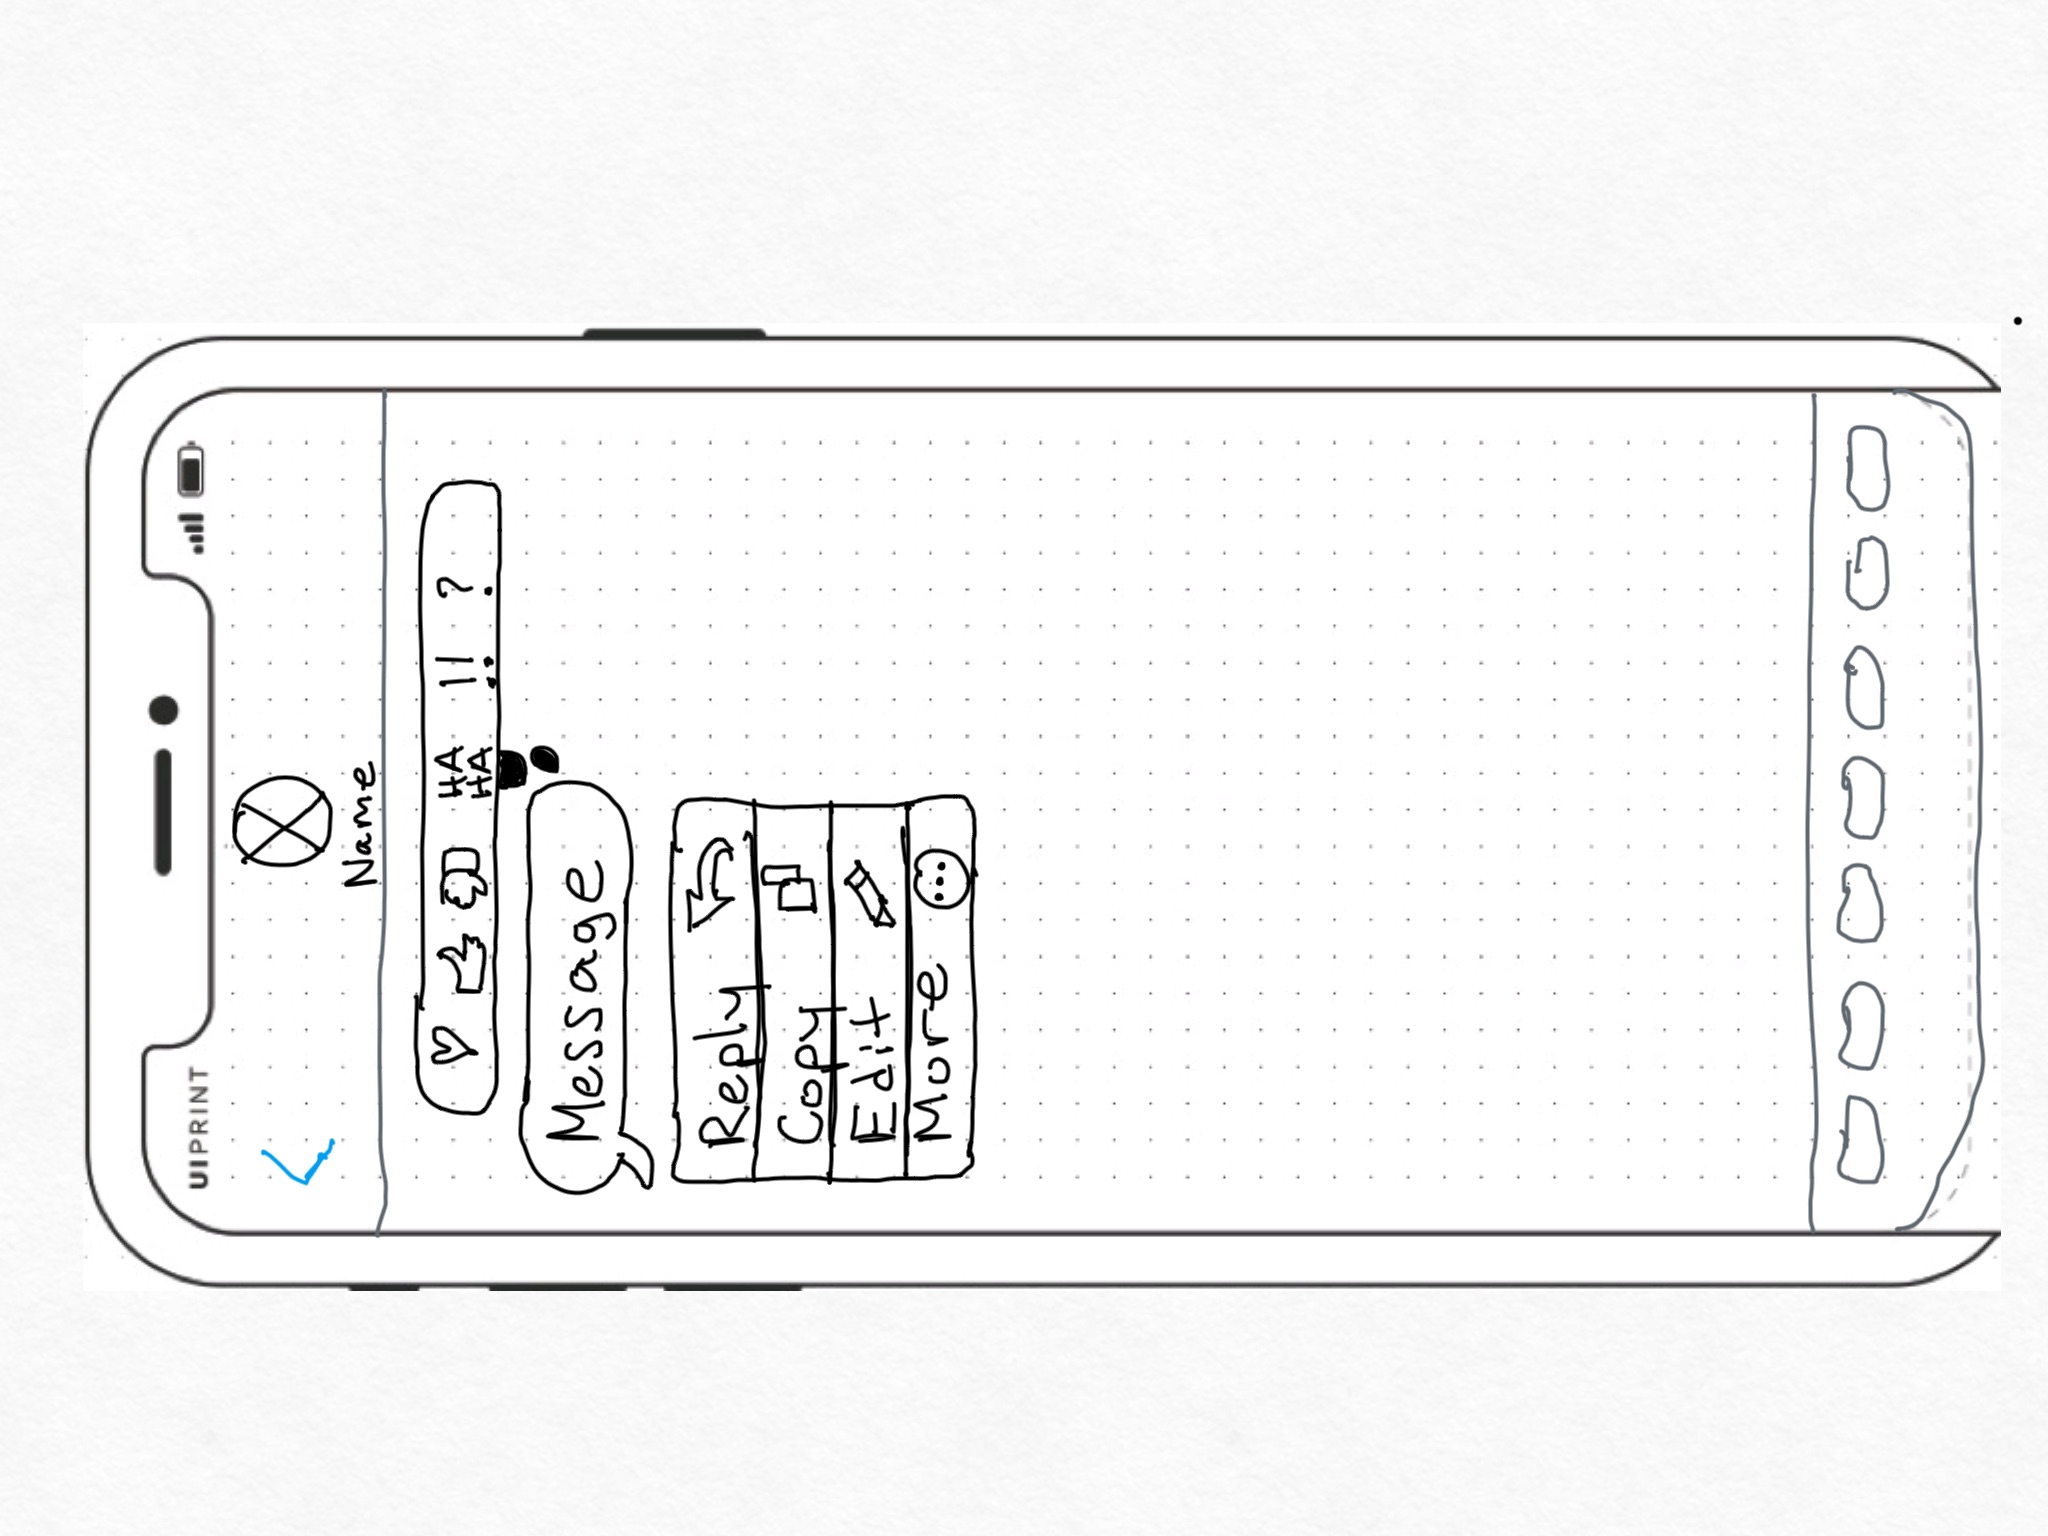 UIPRINT
Name
HA
HA
!! ?
Message
Reply
Copy
Edit
More